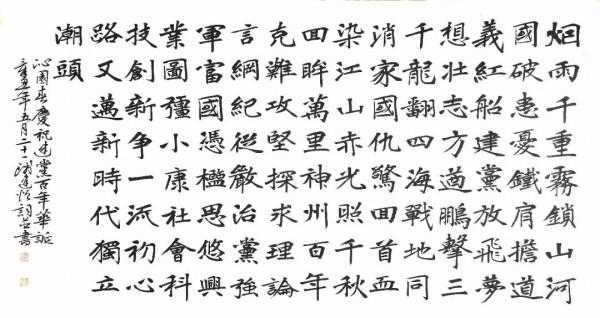 烟雨千重霧鎖山河
國破患憂鐵肩擔道
義紅船建黨放飛夢
想壮志方遒鵬擊三
千龍翻四海戰地同
消家國仇驚回首血
染江山赤光照千秋
回眸萬里神州百年
克難攻堅探求理論
言綱紀從嚴治黨強
軍富國憑楹思悠興
業圖疆小康社會科
技創新争一流初心
路又邁新時代獨立
潮頭
沁園春慶祝建黨百年華誕
辛丑年五月二十一詞并書